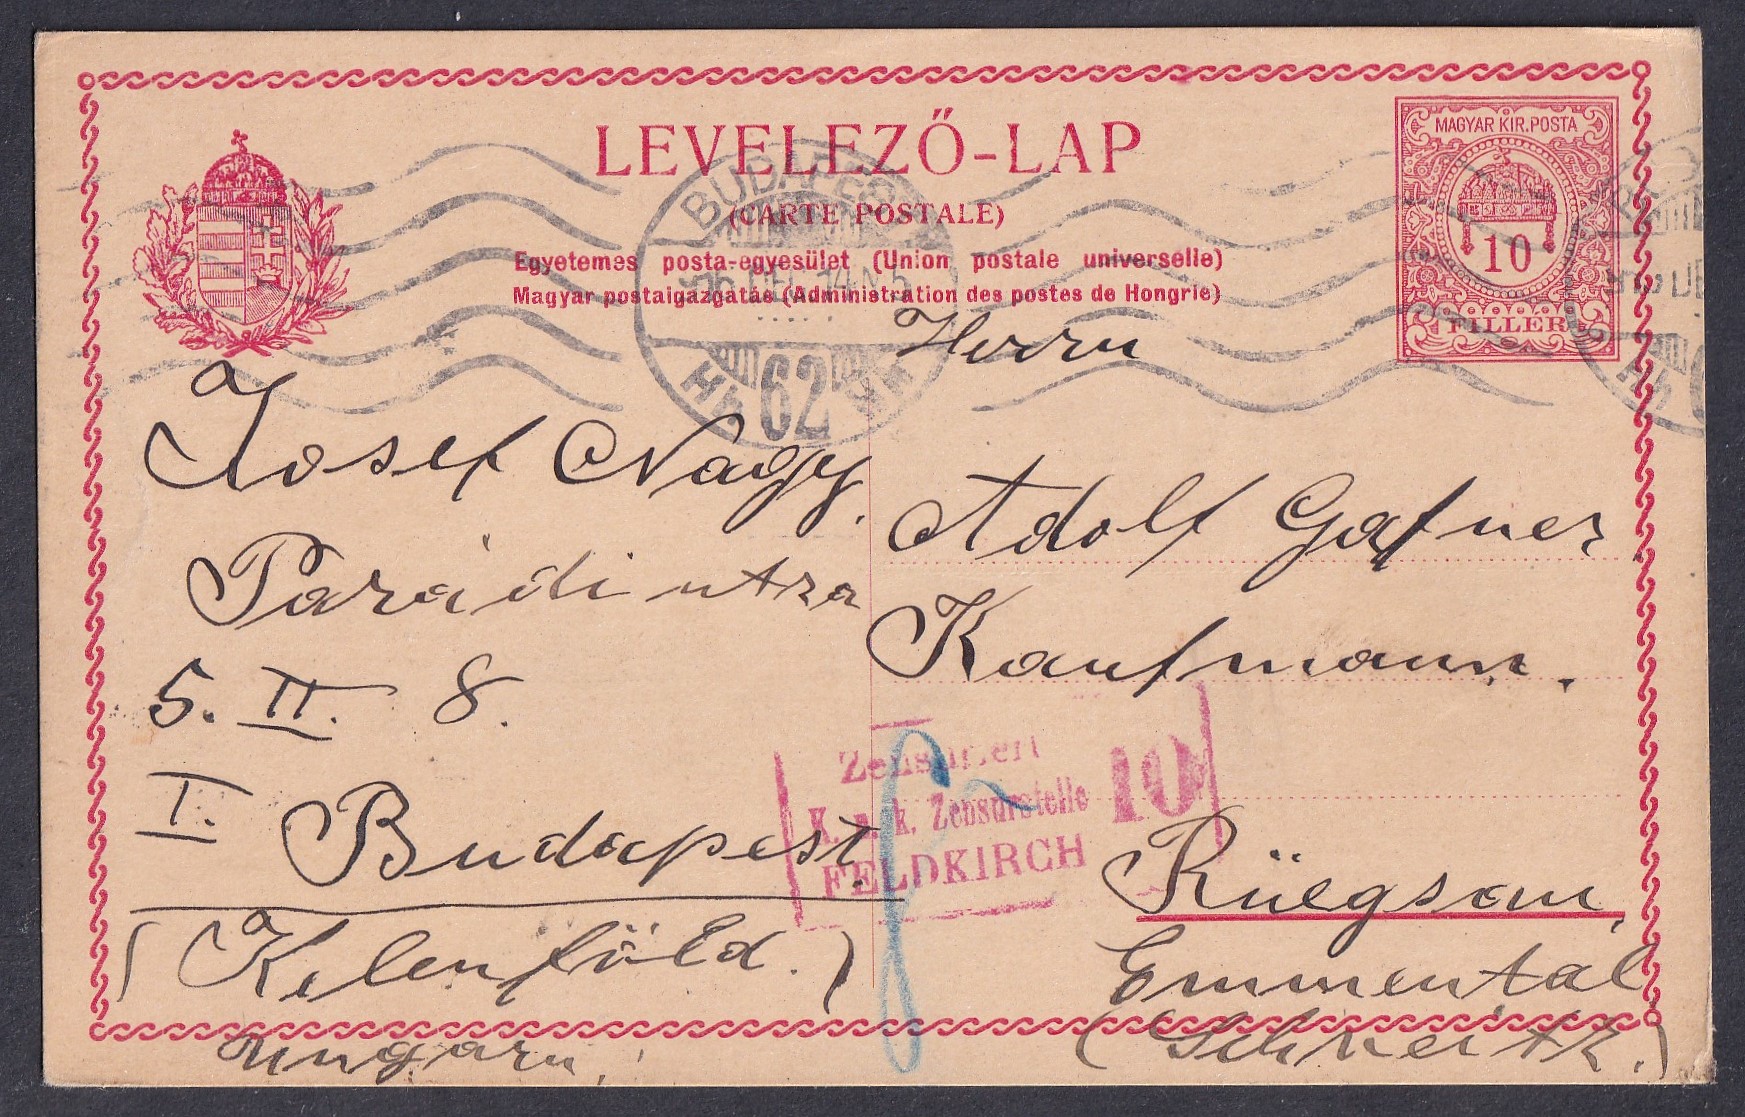 LEVELEZŐ-LAP
(CARTE POSTALE)
Egyetemes posta-egyesület (Union postale universelle)
Magyar postaigazgatás (Administration des postes de Hongrie)
MAGYAR KIR. POSTA
10
FILLÉR
BUDAPEST
62
Josef Nagy.
Parádi utza
5. II. 8.
I. Budapest.
(Kelenföld.)
Ungarn
Herrn
Adolf Gafner
Kaufmann.
Rüegsau,
Emmental
(Schweitz.)
Zensuriert
K. u. k. Zensurstelle
FELDKIRCH
10